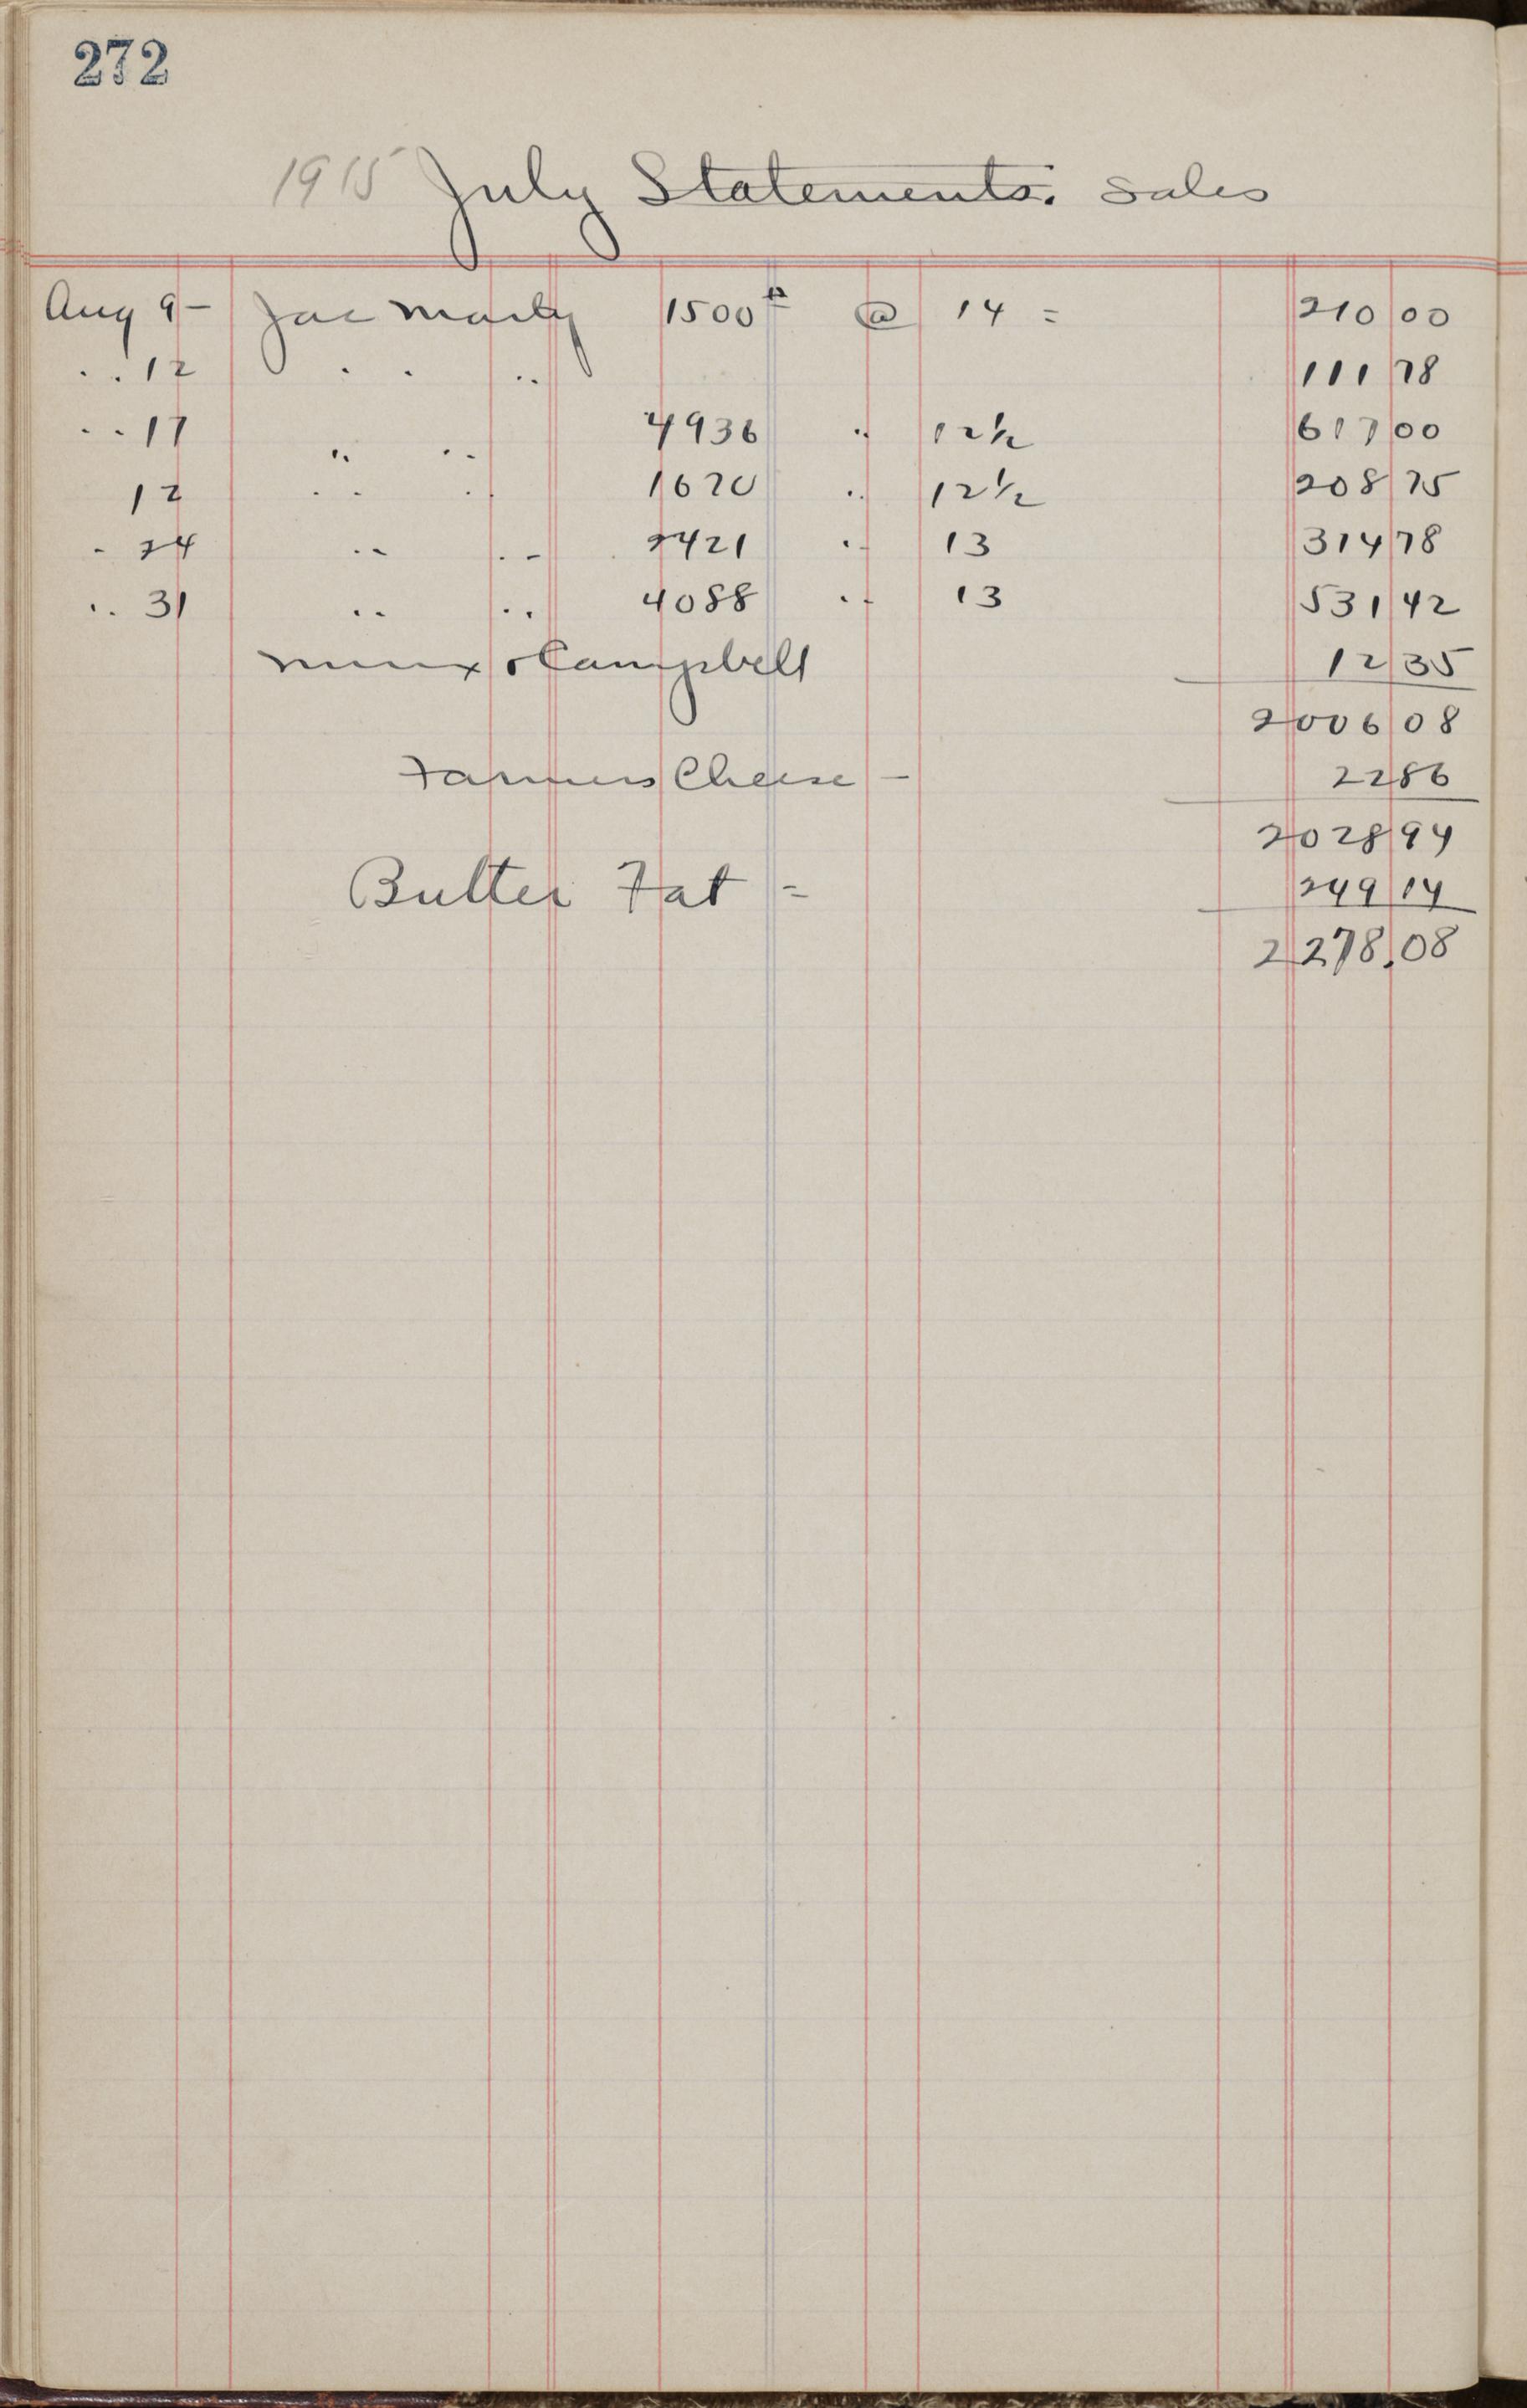 272
1915 July Statements. Sales
Aug 9 - Jac Marty 1500 # @ 14 = 210 00
" 12 " " 111 78
" 17 " " 4936 " 12½ 617 00
12 " " 1670 " 12½ 208 75
" 24 " " 2421 " 13 314 78
" 31 " " 4088 " 13 531 42
& Campbell 12 35
2006 08
Farmers Cheese - 22 86
2028 94
Butter Fat = 249 14
2278.08